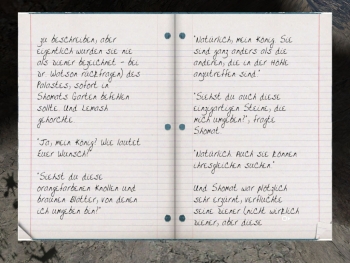 zu beschreiben, aber
eigentlich wurden sie nie
als Diener bezeichnet - bei
Dr. Watson rückfragen) des
Palastes, sofort in
Shomats Garten befehlen
sollte. Und Lemash
gehorchte.
"Ja, mein König! Wie lautet
Euer Wunsch?"
"Siehst du diese
orangefarbenen Knollen und
braunen Blätter, von denen
ich umgeben bin?"
"Natürlich, mein König. Sie
sind ganz anders als die
anderen, die in der Höhle
anzutreffen sind."
"Siehst du auch diese
einzigartigen Steine, die
mich umgeben?", fragte
Shomat.
"Natürlich. Auch sie können
ihresgleichen suchen."
Und Shomat war plötzlich
sehr erzürnt, verfluchte
seine Diener (nicht wirklich
Diener, aber diese